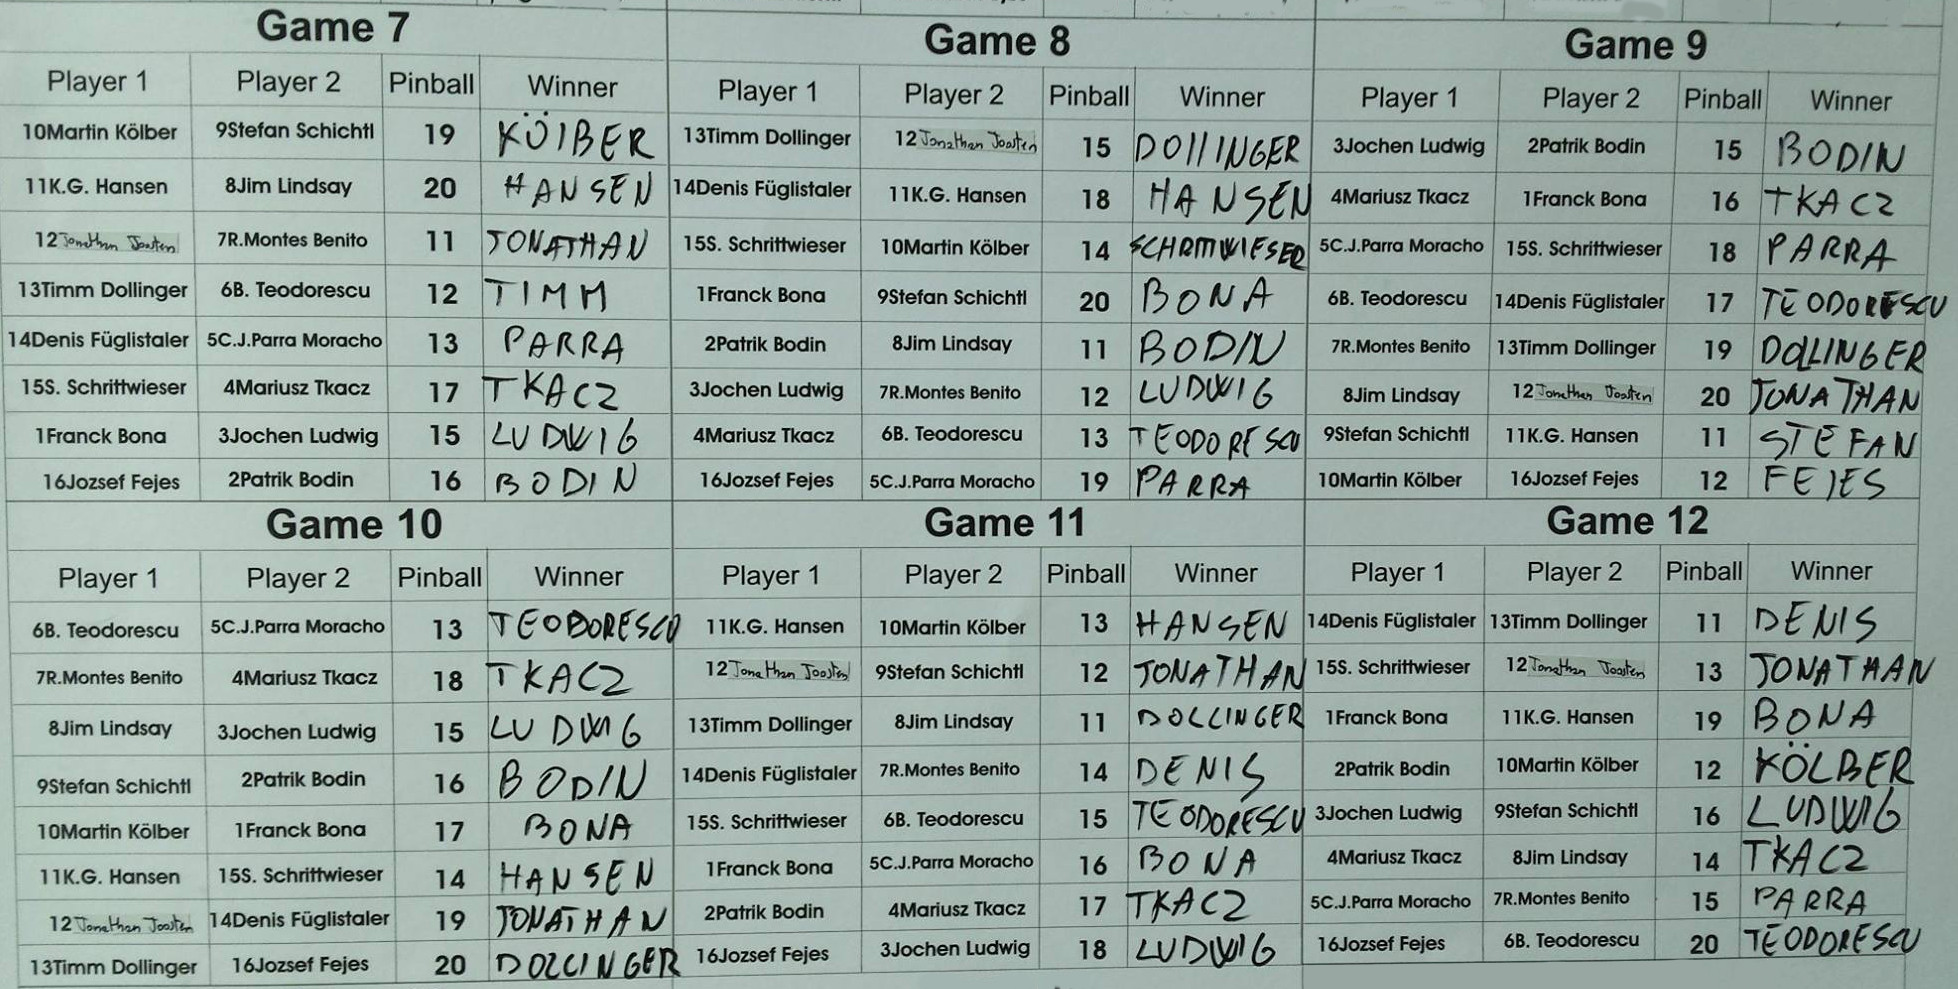 Game 7
Player 1 Player 2 Pinball Winner
10Martin Kölber 9Stefan Schichtl 19 KÖLBER
11K.G. Hansen 8Jim Lindsay 20 HANSEN
12 Jonathan Joosten 7R.Montes Benito 11 JONATHAN
13Timm Dollinger 6B. Teodorescu 12 TIMM
14Denis Füglistaler 5C.J.Parra Moracho 13 PARRA
15S. Schrittwieser 4Mariusz Tkacz 17 TKACZ
1Franck Bona 3Jochen Ludwig 15 LUDWIG
16Jozsef Fejes 2Patrik Bodin 16 BODIN
Game 8
Player 1 Player 2 Pinball Winner
13Timm Dollinger 12 Jonathan Joosten 15 DOLLINGER
14Denis Füglistaler 11K.G. Hansen 18 HANSEN
15S. Schrittwieser 10Martin Kölber 14 SCHRITTWIESER
1Franck Bona 9Stefan Schichtl 20 BONA
2Patrik Bodin 8Jim Lindsay 11 BODIN
3Jochen Ludwig 7R.Montes Benito 12 LUDWIG
4Mariusz Tkacz 6B. Teodorescu 13 TEODORESCU
16Jozsef Fejes 5C.J.Parra Moracho 19 PARRA
Game 9
Player 1 Player 2 Pinball Winner
3Jochen Ludwig 2Patrik Bodin 15 BODIN
4Mariusz Tkacz 1Franck Bona 16 TKACZ
5C.J.Parra Moracho 15S. Schrittwieser 18 PARRA
6B. Teodorescu 14Denis Füglistaler 17 TEODORESCU
7R.Montes Benito 13Timm Dollinger 19 DOLLINGER
8Jim Lindsay 12 Jonathan Joosten 20 JONATHAN
9Stefan Schichtl 11K.G. Hansen 11 STEFAN
10Martin Kölber 16Jozsef Fejes 12 FEJES
Game 10
Player 1 Player 2 Pinball Winner
6B. Teodorescu 5C.J.Parra Moracho 13 TEODORESCU
7R.Montes Benito 4Mariusz Tkacz 18 TKACZ
8Jim Lindsay 3Jochen Ludwig 15 LUDWIG
9Stefan Schichtl 2Patrik Bodin 16 BODIN
10Martin Kölber 1Franck Bona 17 BONA
11K.G. Hansen 15S. Schrittwieser 14 HANSEN
12 Jonathan Joosten 14Denis Füglistaler 19 JONATHAN
13Timm Dollinger 16Jozsef Fejes 20 DOLLINGER
Game 11
Player 1 Player 2 Pinball Winner
11K.G. Hansen 10Martin Kölber 13 HANSEN
12 Jonathan Joosten 9Stefan Schichtl 12 JONATHAN
13Timm Dollinger 8Jim Lindsay 11 DOLLINGER
14Denis Füglistaler 7R.Montes Benito 14 DENIS
15S. Schrittwieser 6B. Teodorescu 15 TEODORESCU
1Franck Bona 5C.J.Parra Moracho 16 BONA
2Patrik Bodin 4Mariusz Tkacz 17 TKACZ
16Jozsef Fejes 3Jochen Ludwig 18 LUDWIG
Game 12
Player 1 Player 2 Pinball Winner
14Denis Füglistaler 13Timm Dollinger 11 DENIS
15S. Schrittwieser 12 Jonathan Joosten 13 JONATHAN
1Franck Bona 11K.G. Hansen 19 BONA
2Patrik Bodin 10Martin Kölber 12 KÖLBER
3Jochen Ludwig 9Stefan Schichtl 16 LUDWIG
4Mariusz Tkacz 8Jim Lindsay 14 TKACZ
5C.J.Parra Moracho 7R.Montes Benito 15 PARRA
16Jozsef Fejes 6B. Teodorescu 20 TEODORESCU